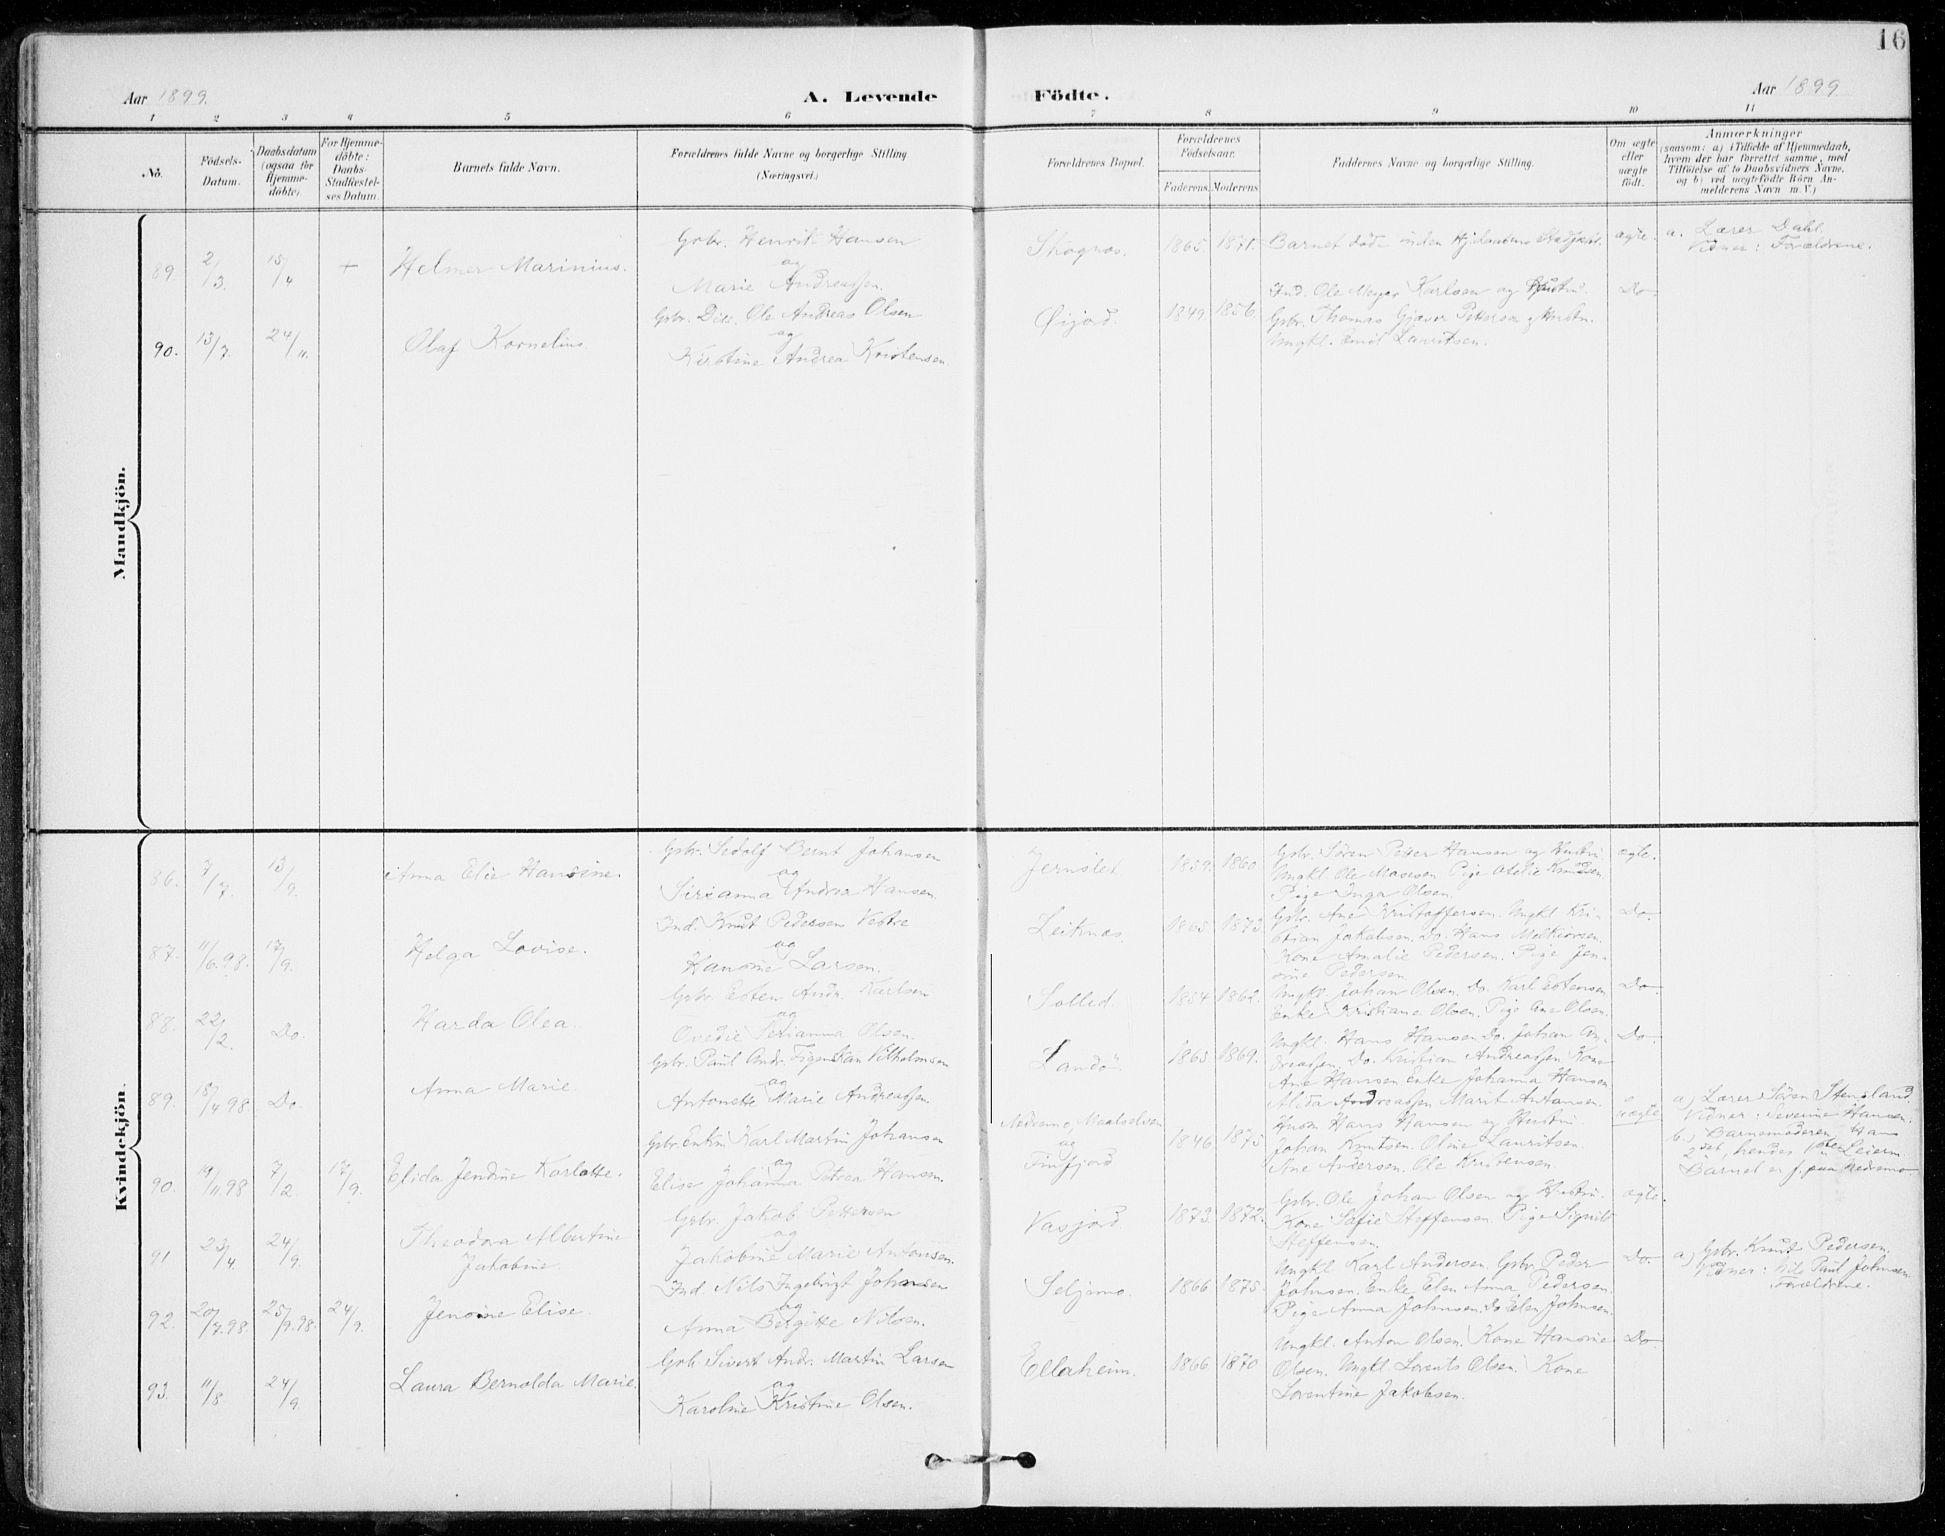 16
Aar 1899.
A. Levende Födte.
Aar 1899
1 2 3 4 5 6 7 8 9 10 11
No.
Födsels-Datum.
Daabsdatum (ogsaa for Hjemme-döbte).
For Hjemme-döbte: Daabs-Stadfæstel-ses Datum.
Barnets fulde Navn.
Forældrenes fulde Navne og borgerlige Stilling (Næringsvei.)
Forældrenes Bopæl.
Forældrenes Födselsaar.
Faderens. Moderens.
Faddernes Navne og borgerlige Stilling.
Om ægte eller uægte födt.
Anmærkninger
(saasom: a) i Tilfælde af Hjemmedaab,
hvem der har forrettet samme, med
Tilföielse af to Daabsvidners Navne,
og b) ved uægtefödte Börn An-
melderens Navn m. V.)
Mandkjön.
89. 2/3. 15/4 + Helmer Marinius. Gbr. Henrik Hansen og Marie Andreassen. Skognæs. 1865 1871. Barnet død inden Hjdaabens Stadfæst. ægte. a. Lærer Dahl. Vidner: Forældrene.
90. 13/7. 24/11. Olaf Kornelius. Gbr. Ole Andreas Olsen og Kirstine Andrea Kristensen. Øijord. 1849 1856.
Ind. Ole Meyer Karlsen og Hustru.
Gbr. Thomas Gjæver Pettersen & Hustru.
Ungkl. Emil Lauritsen.
Do.
Kvindekjön.
86. 7/7. 13/9. Anna Elie Hansine. Gbr. Sedolf Bernt Johansen og Sirianna Andrea Hansen. Jernslet. 1859. 1860.
Gbr. Sören Peter Hansen og Hustru
Ungkl Ole Mosesen Pige Otelie Knudsen
Pige Inga Olsen.
ægte.
87. 11/6.98. 17/9. Helga Lovise. Ind. Knut Pedersen Vestre og Hansine Larsen. Leiknæs 1865 1873.
Gbr. Ane Kristoffersen. Ungkl Kri-
stian Jakobsen. Do. Hans Melkiorsen.
Kone Amalie Pedersen. Pige Jen-
sine Pedersen
Do.
88. 22/2. Do. Harda Olea. Gbr. Esten Andr. Karlsen og Ovedie Serianna Olsen. Solled. 1854 1862.
Ungk. Johan Olsen. Do. Karl Estensen
Enke Kristiane Olsen. Pige Ane Olsen.
Do.
89. 18/4 98 Do. Anna Marie. Gbr. Paul Andr. Vilhelmsen og Antonette Marie Andreassen. Landö. 1865 1869.
Ungkl. Hans Hansen Do. Johan An-
dreassen. Do. Kristian Andreassen Kone
Ane Hansen Enke Johanna Hansen
Alida Andreassen Marit Antonsen.
Do.
90. 19/11 98 7/2. 17/9. Elida Jendine Karlotte. Gbr. Enkm. Karl Martin Johansen og Elise Johanna Petrea Hansen. Nedremo, Maalselven og Finfjord 1846 1875.
Husm Hans Hansen og Hustru.
Johan Knutsen. Oline Lauritsen
Ane Andersen. Ole Kristensen.
uægte
a) Lærer Sören Stensland.
Vidner: Severine Hansen.
b.) Barnemoderen. Hans
2det, hendes 1ste Leierm.
Barnet er f. paa Nedremo
91 23/4. 24/9. Theodora Albertine Jakobine. Gbr. Jakob Pettersen og Jakobine Marie Antonsen. Vasjord. 1873. 1872.
Gbr. Ole Johan Olsen og Hustru.
Kone Sofie Steffensen. Pige Sigrid
Steffensen.
ægte.
92. 20/7.98. 25/9.98. 24/9. Jensine Elise. Ind. Nils Ingebrigt Johnsen og Anna Bergitte Nilsen. Seljemo. 1866 1875.
Ungkl Karl Andersen. Gbr. Peder
Johnsen. Enke Elen Anna Pedersen.
Pige Anna Johnsen. Do Elen Johnsen.
Do.
a) Gbr. Knut Pedersen.
Vidner: Nils Paul Johnsen.
Forældrene.
93. 11/8 24/9. Laura Bernolda Marie. Gbr. Sivert Andr. Martin Larsen og Karoline Kristine Olsen. Ellaheim. 1866 1870
Ungkl. Anton Olsen. Kone Hansine
Olsen. Ungkl Lorents Olsen. Kone
Lorentine Jakobsen.
Do